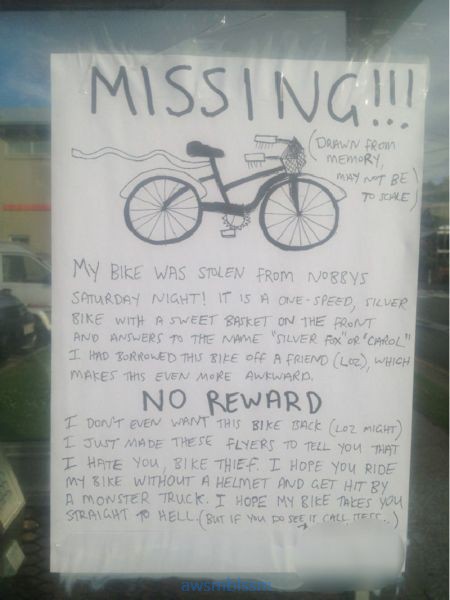 MISSING!!!
(DRAWN FROM
MEMORY,
MAY NOT BE
TO SCALE)
MY BIKE WAS STOLEN FROM NOBBYS
SATURDAY NIGHT! IT IS A ONE-SPEED, SILVER
BIKE WITH A SWEET BASKET ON THE FRONT
AND ANSWERS TO THE NAME "SILVER FOX" OR "CAROL"
I HAD BORROWED THIS BIKE OFF A FRIEND (LOZ), WHICH
MAKES THIS EVEN MORE AWKWARD.
NO REWARD
I DON'T EVEN WANT THIS BIKE BACK (LOZ MIGHT)
I JUST MADE THESE FLYERS TO TELL YOU THAT
I HATE YOU, BIKE THIEF. I HOPE YOU RIDE
MY BIKE WITHOUT A HELMET AND GET HIT BY
A MONSTER TRUCK. I HOPE MY BIKE TAKES YOU
STRAIGHT TO HELL. (BUT IF YOU DO SEE IT CALL